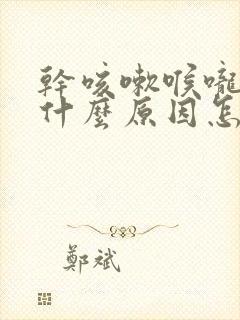 幹咳嗽喉嚨
什麼原因怎
鄭斌